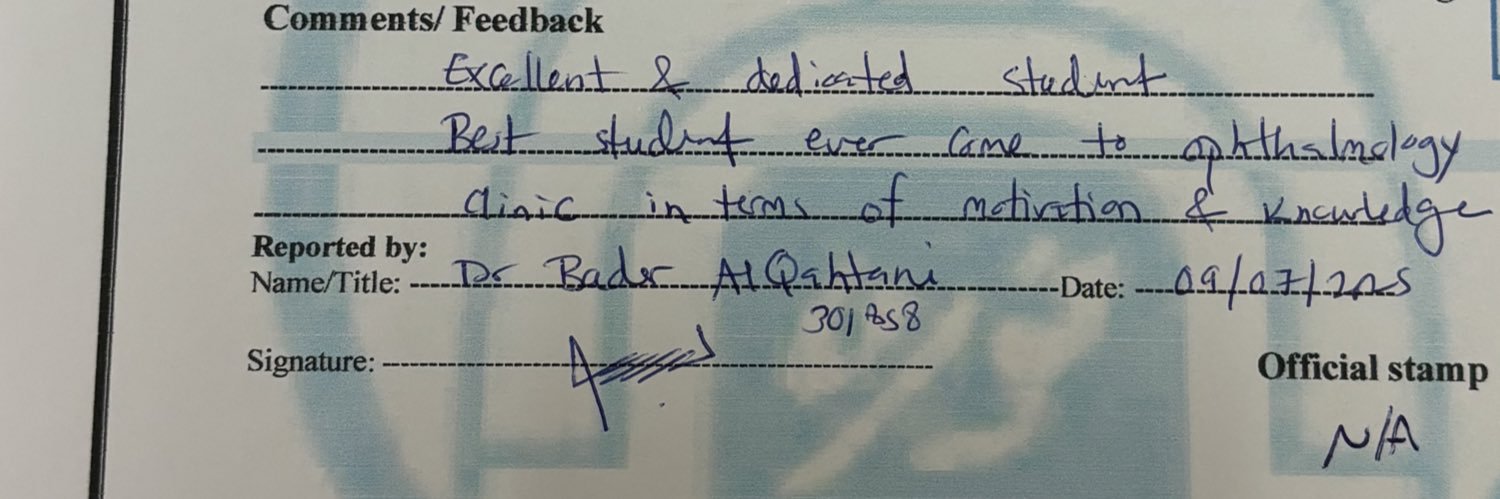 Comments/ Feedback
Excellent & dedicated student
Best student ever came to ophthalmology
clinic in terms of motivation & knowledge
Reported by:
Name/Title: Dr Bader AlQahtani Date: 09/07/2025
Signature:
Official stamp
N/A